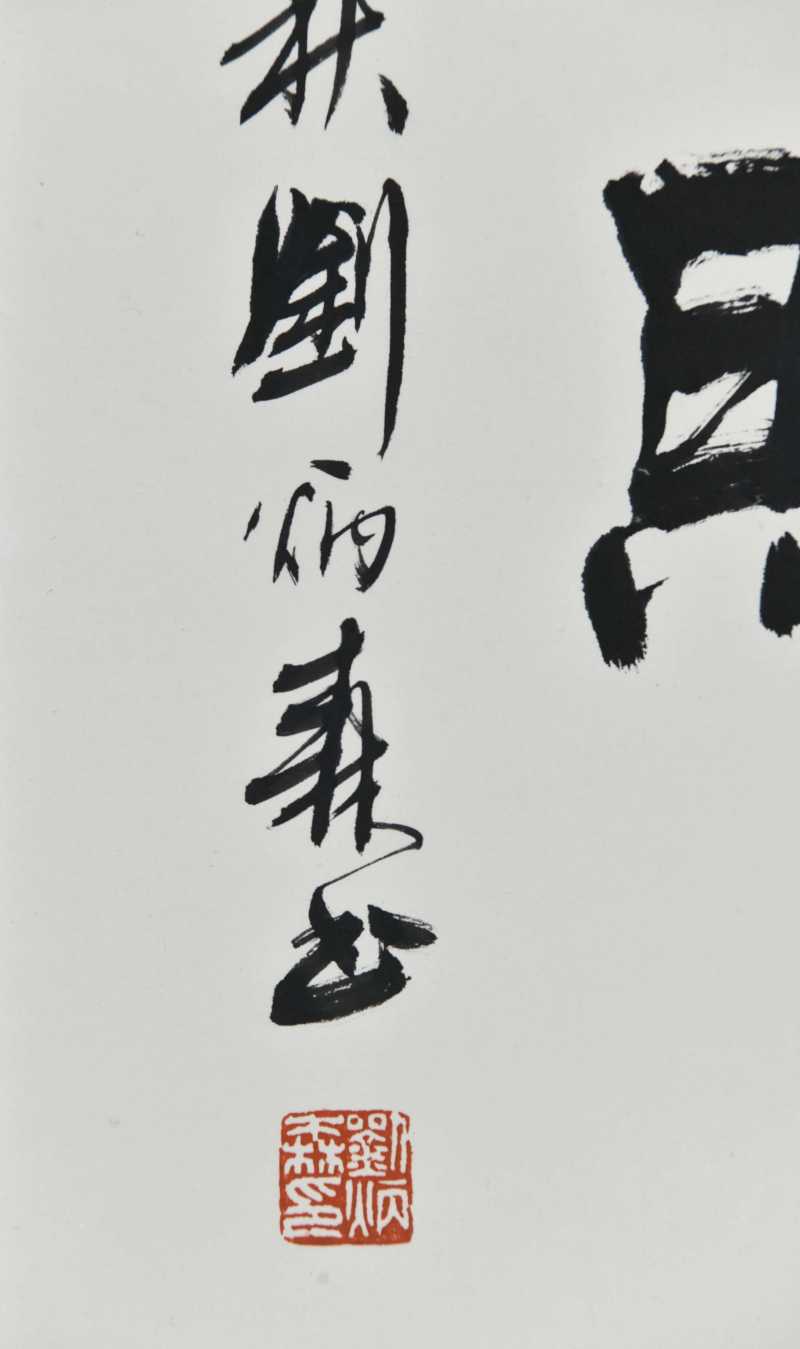 秋劉炳森书
劉炳
森印